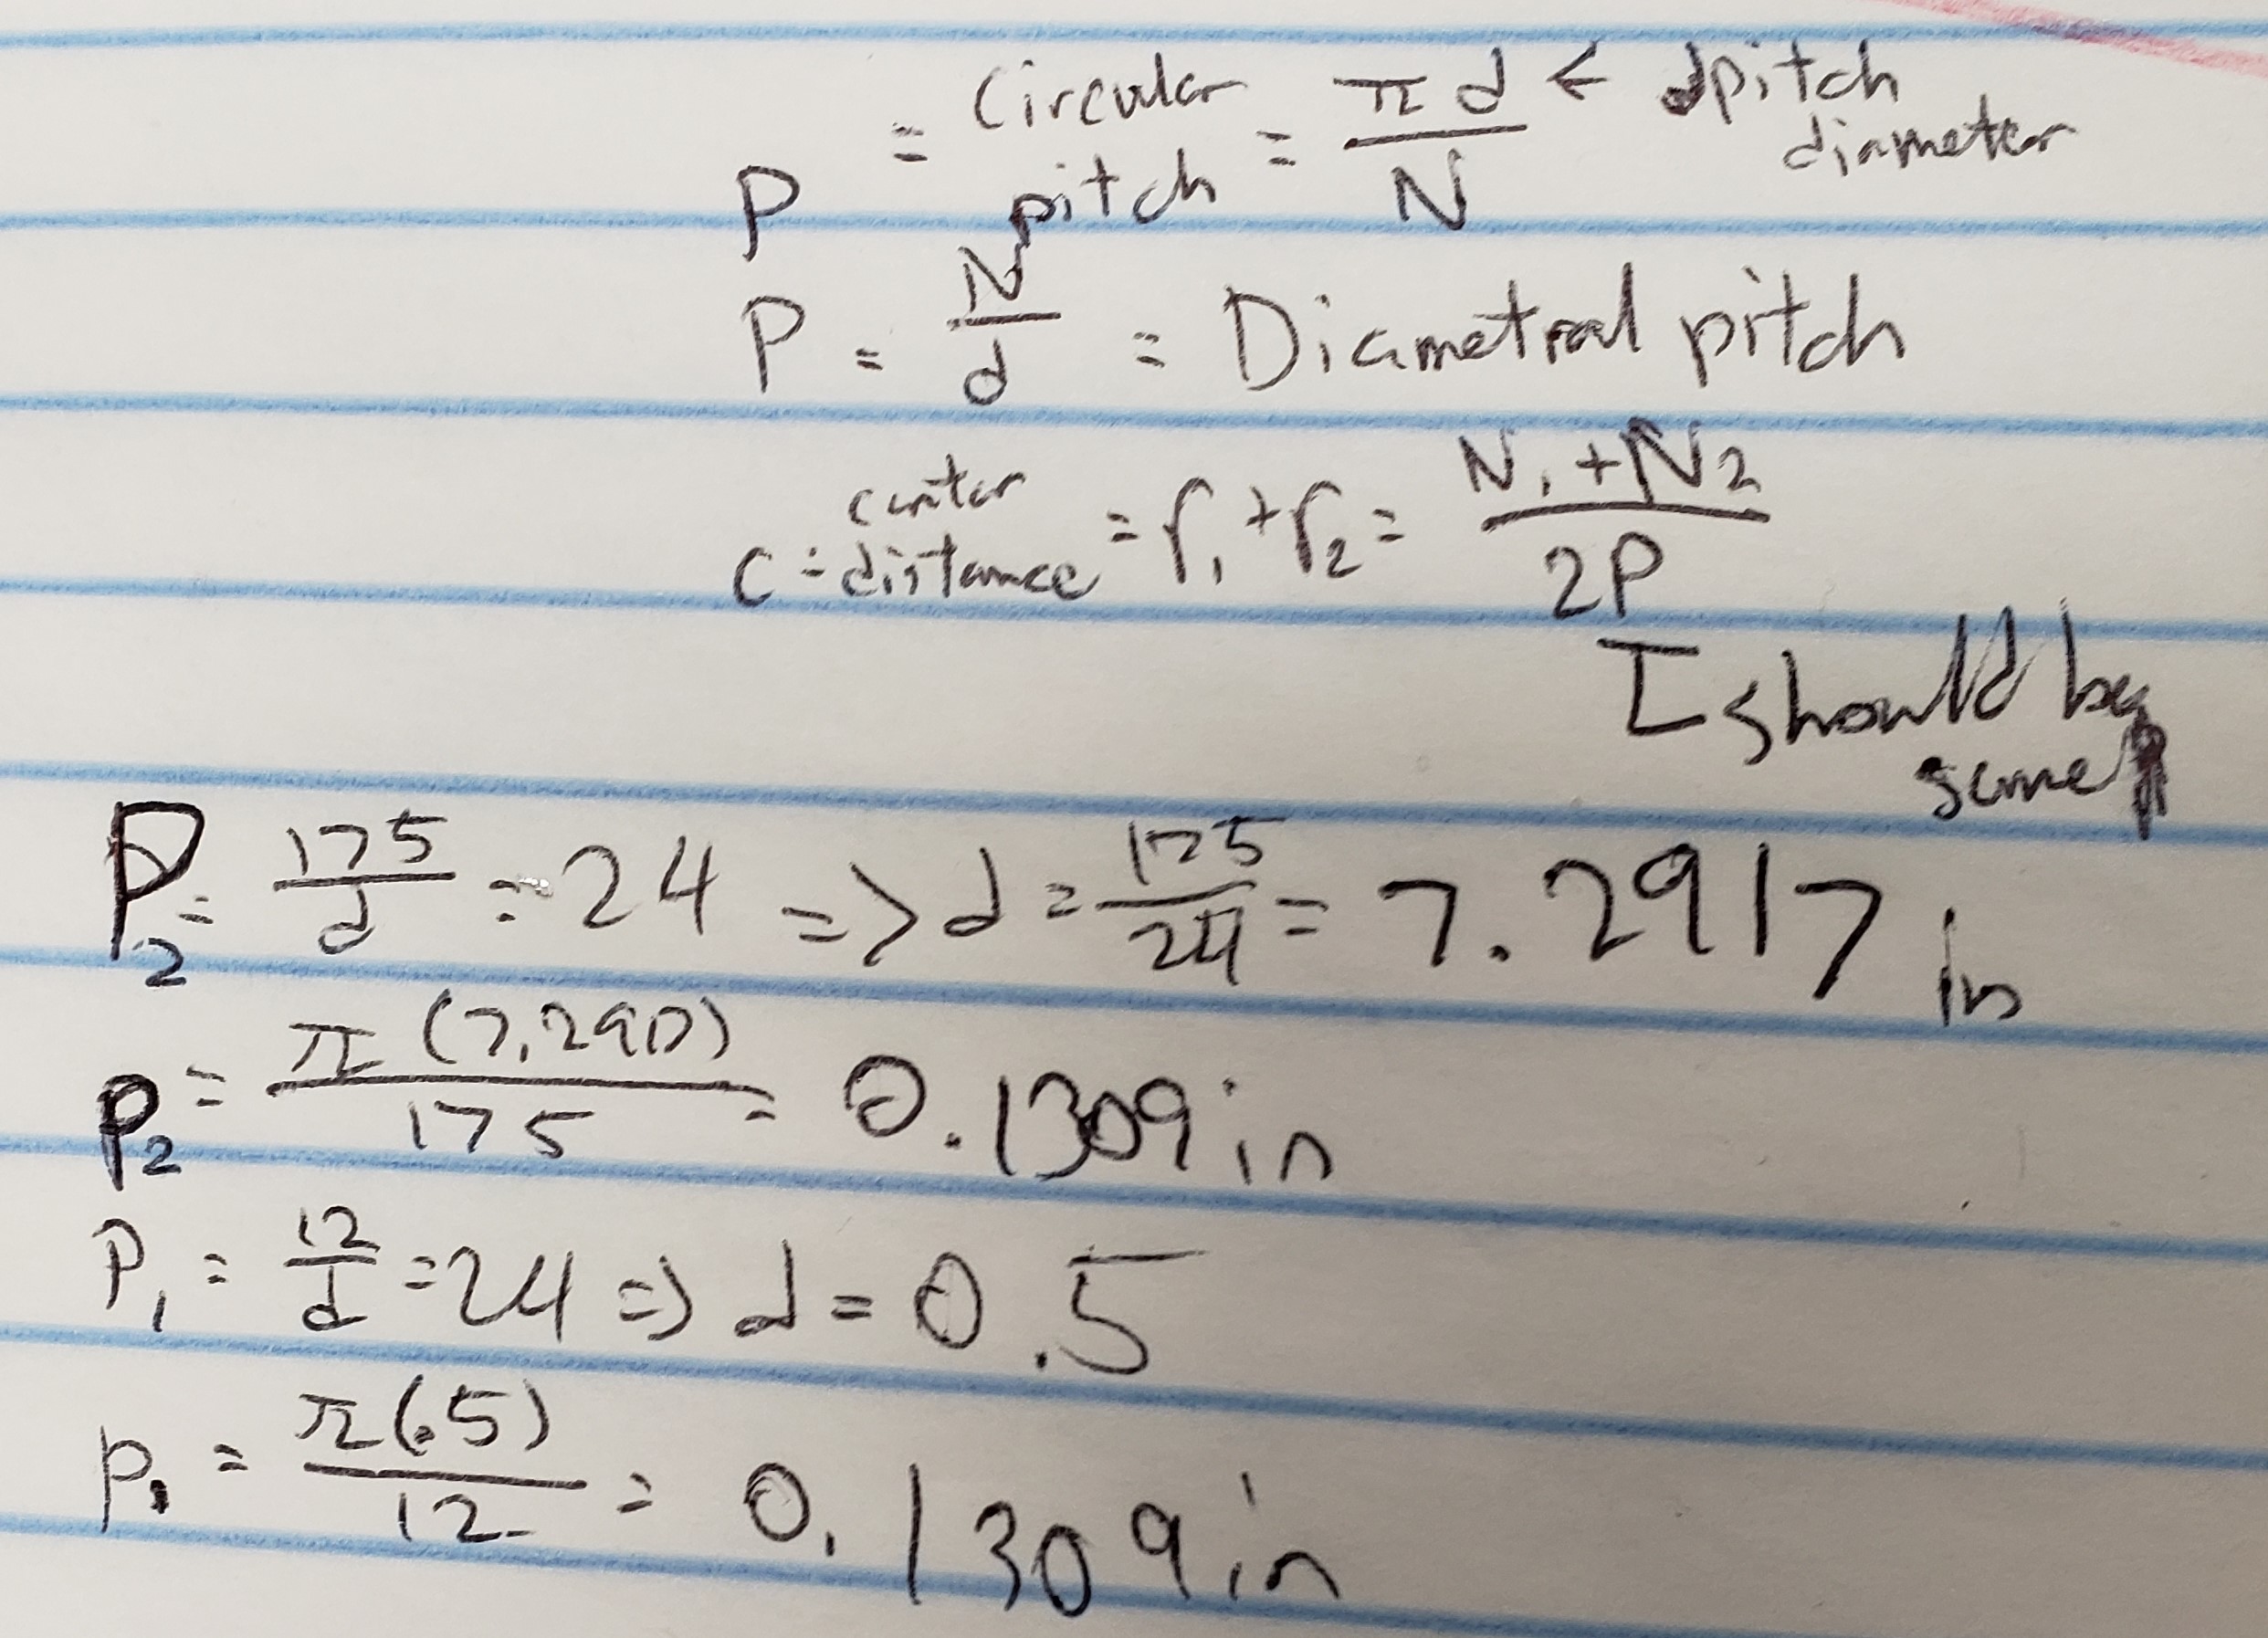 p = circular pitch = πd/N ← pitch diameter
P = N/d = Diametral pitch
C = center distance = r₁ + r₂ = N₁+N₂/2P
should be same
P₂ = 175/d = 24 => d = 175/24 = 7.2917 in
p₂ = π(7.2917)/175 = 0.1309 in
P₁ = 12/d = 24 => d = 0.5
p₁ = π(.5)/12 = 0.1309 in